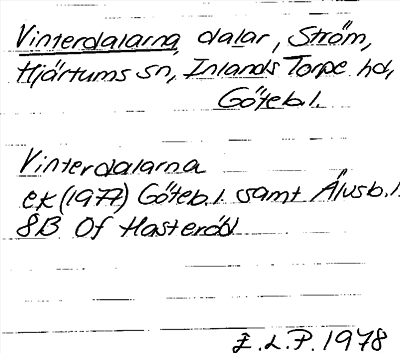 Vinterdalarna, dalar, Ström,
Hjärtums sn, Inlands Torpe hd,
Göteb. l.
Vinterdalarna
ek (1977) Göteb. l. samt Älvsb. l.
8B Of Hasteröd
E. L. P. 1978